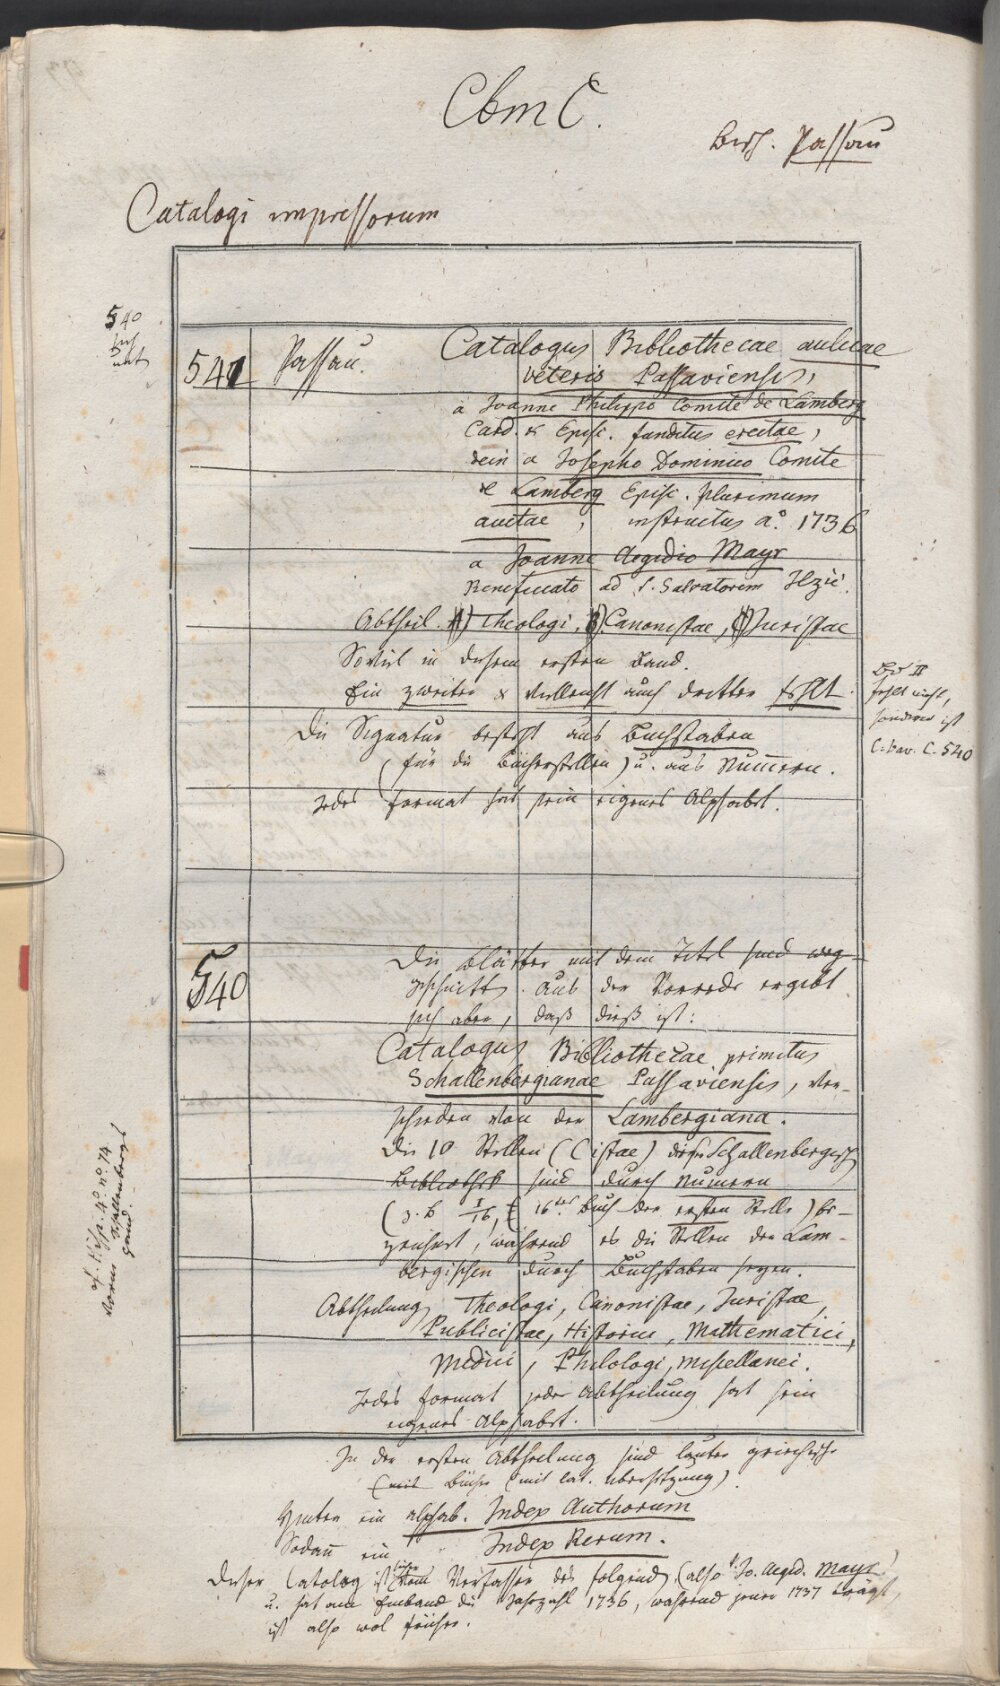 Cbm C.
Bisch. Passau
Catalogi impressorum
540
sieh
unt
541 Passau. Catalogus Bibliothecae aulicae
veteris Passaviensis,
a Joanne Philippo Comite de Lamberg
Card. & Episc. funditus erectae,
dein a Josepho Dominico Comite
de Lamberg Episc. plurimum
auctae, instructus aº. 1736
a Joanne Aegidio Mayr
Beneficiato ad S. Salvatorem Ilzii.
Abtheil. A) Theologi, B) Canonistae, C) Juristae
Soviel in diesem ersten Band.
Ein zweiter & vielleicht auch dritter fehlt.
Bd II
fehlt nicht,
sondern ist
C. bav. C. 540
Die Signatur besteht aus Buchstaben
(für die Bücherstellen) u. aus Numern.
Jedes Format hat sein eigenes Alphabet.
540 Die Blätter mit dem Titel sind weg-
geschnitten. Aus der Vorrede ergibt
sich aber, daß dieß ist:
Catalogus Bibliothecae primitus
Schallenbergianae Passaviensis, ver-
schieden von der Lambergiana.
Die 10 Stellen (Cistae) dieser Schallenbergisch
Bibliothek sind durch Numern
(z. B. 1/16, 16tes Buch der ersten Stelle) be-
zeichnet, während es die Stellen der Lam-
bergischen durch Buchstaben seyen.
Vorne Schallenbergs
Abtheilung Theologi, Canonistae, Juristae,
Publicistae, Historici, Mathematici,
Medici, Philologi, Miscellanei.
Jedes Format jeder Abtheilung hat sein
eigenes Alphabet.
In der ersten Abtheilung sind lauter griechische
(mit Bücher (mit lat. Übersetzung)
Hinten ein alphab. Index Authorum
Sodann ein Index Rerum.
Dieser Catalog ist vom Verfasser des folgend. (also v. Jo. Aegid. Mayr)
u. hat am Einband die Jahrzahl 1736, während jener 1737 trägt,
ist also wol früher.